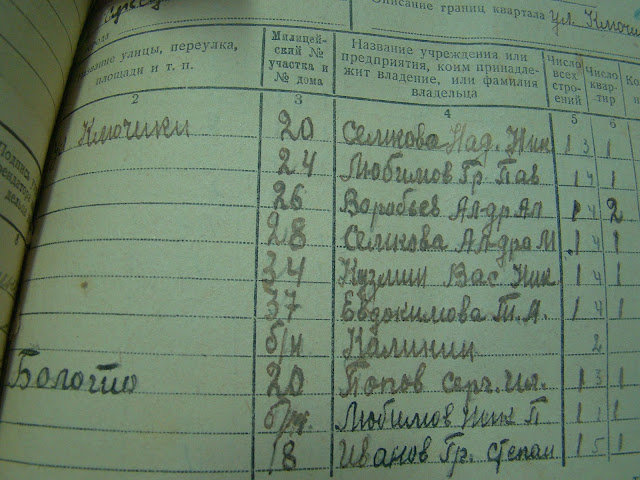 Описание границ квартала ул. Ключи
Название улицы, переулка, площади и т. п.
Милицейский № участка и № дома
Название учреждения или предприятия, коим принадлежит владение, или фамилия владельца
Число всех строений
Число квартир
2 3 4 5 6
Ключики 20 Селикова Над. Ник 1 3 1
24 Любимов Гр. Пав 1 4 1
26 Воробьев Ал-др Ал 1 4 2
28 Селикова Ал-дра М 1 4 1
34 Кузмин Вас. Ник 1 4 1
37 Евдокимова Т.А. 1 4 1
б/н Калинин 2
Болото 20 Попов Серг. Ив. 1 3 1
б/н. Любимов Ник П 1 1 1
18 Иванов Гр. Степан 1 5 1